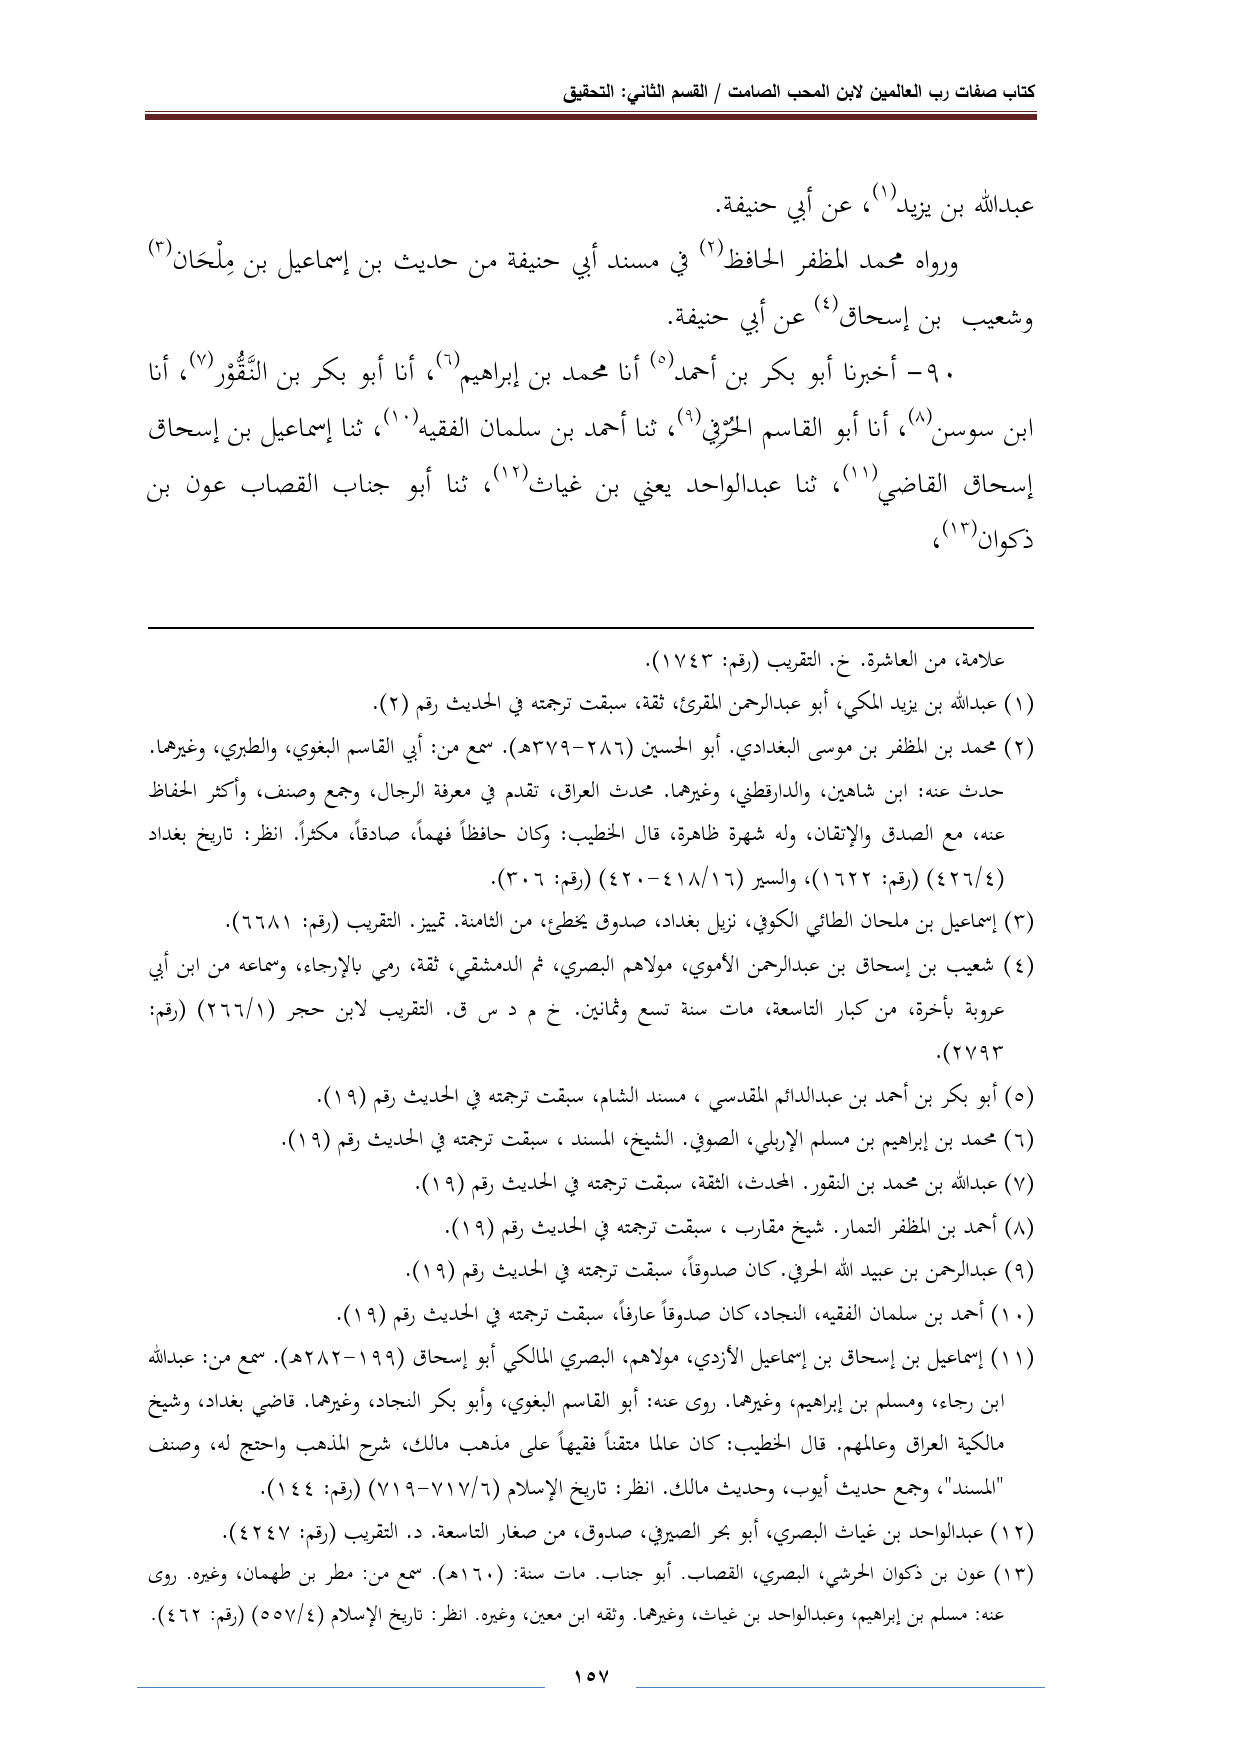 كتاب صفات رب العالمين لابن المحب الصامت / القسم الثاني: التحقيق
عبدالله بن يزيد(١)، عن أبي حنيفة.
ورواه محمد المظفر الحافظ(٢) في مسند أبي حنيفة من حديث بن إسماعيل بن مِلْحَان(٣)
وشعيب بن إسحاق(٤) عن أبي حنيفة.
٩٠- أخبرنا أبو بكر بن أحمد(٥) أنا محمد بن إبراهيم(٦)، أنا أبو بكر بن النَّقُّوْر(٧)، أنا
ابن سوسن(٨)، أنا أبو القاسم الحُرْفِي(٩)، ثنا أحمد بن سلمان الفقيه(١٠)، ثنا إسماعيل بن إسحاق
إسحاق القاضي(١١)، ثنا عبدالواحد يعني بن غياث(١٢)، ثنا أبو جناب القصاب عون بن
ذكوان(١٣)،
علامة، من العاشرة. خ. التقريب (رقم: ١٧٤٣).
(١) عبدالله بن يزيد المكي، أبو عبدالرحمن المقرئ، ثقة، سبقت ترجمته في الحديث رقم (٢).
(٢) محمد بن المظفر بن موسى البغدادي. أبو الحسين (٢٨٦-٣٧٩هـ). سمع من: أبي القاسم البغوي، والطبري، وغيرهما.
حدث عنه: ابن شاهين، والدارقطني، وغيرهما. محدث العراق، تقدم في معرفة الرجال، وجمع وصنف، وأكثر الحفاظ
عنه، مع الصدق والإتقان، وله شهرة ظاهرة، قال الخطيب: وكان حافظاً فهماً، صادقاً، مكثراً. انظر: تاريخ بغداد
(٤٢٦/٤) (رقم: ١٦٢٢)، والسير (٤١٨/١٦-٤٢٠) (رقم: ٣٠٦).
(٣) إسماعيل بن ملحان الطائي الكوفي، نزيل بغداد، صدوق يخطئ، من الثامنة. تمييز. التقريب (رقم: ٦٦٨١).
(٤) شعيب بن إسحاق بن عبدالرحمن الأموي، مولاهم البصري، ثم الدمشقي، ثقة، رمي بالإرجاء، وسماعه من ابن أبي
عروبة بأخرة، من كبار التاسعة، مات سنة تسع وثمانين. خ م د س ق. التقريب لابن حجر (٢٦٦/١) (رقم:
٢٧٩٣).
(٥) أبو بكر بن أحمد بن عبدالدائم المقدسي ، مسند الشام، سبقت ترجمته في الحديث رقم (١٩).
(٦) محمد بن إبراهيم بن مسلم الإربلي، الصوفي. الشيخ، المسند ، سبقت ترجمته في الحديث رقم (١٩).
(٧) عبدالله بن محمد بن النقور. المحدث، الثقة، سبقت ترجمته في الحديث رقم (١٩).
(٨) أحمد بن المظفر التمار. شيخ مقارب ، سبقت ترجمته في الحديث رقم (١٩).
(٩) عبدالرحمن بن عبيد الله الحرفي. كان صدوقاً، سبقت ترجمته في الحديث رقم (١٩).
(١٠) أحمد بن سلمان الفقيه، النجاد، كان صدوقاً عارفاً، سبقت ترجمته في الحديث رقم (١٩).
(١١) إسماعيل بن إسحاق بن إسماعيل الأزدي، مولاهم، البصري المالكي أبو إسحاق (١٩٩-٢٨٢هـ). سمع من: عبدالله
ابن رجاء، ومسلم بن إبراهيم، وغيرهما. روى عنه: أبو القاسم البغوي، وأبو بكر النجاد، وغيرهما. قاضي بغداد، وشيخ
مالكية العراق وعالمهم. قال الخطيب: كان عالما متقناً فقيهاً على مذهب مالك، شرح المذهب واحتج له، وصنف
"المسند"، وجمع حديث أيوب، وحديث مالك. انظر: تاريخ الإسلام (٧١٧/٦-٧١٩) (رقم: ١٤٤).
(١٢) عبدالواحد بن غياث البصري، أبو بحر الصيرفي، صدوق، من صغار التاسعة. د. التقريب (رقم: ٤٢٤٧).
(١٣) عون بن ذكوان الحرشي، البصري، القصاب. أبو جناب. مات سنة: (١٦٠هـ). سمع من: مطر بن طهمان، وغيره. روى
عنه: مسلم بن إبراهيم، وعبدالواحد بن غياث، وغيرهما. وثقه ابن معين، وغيره. انظر: تاريخ الإسلام (٥٥٧/٤) (رقم: ٤٦٢).
١٥٧